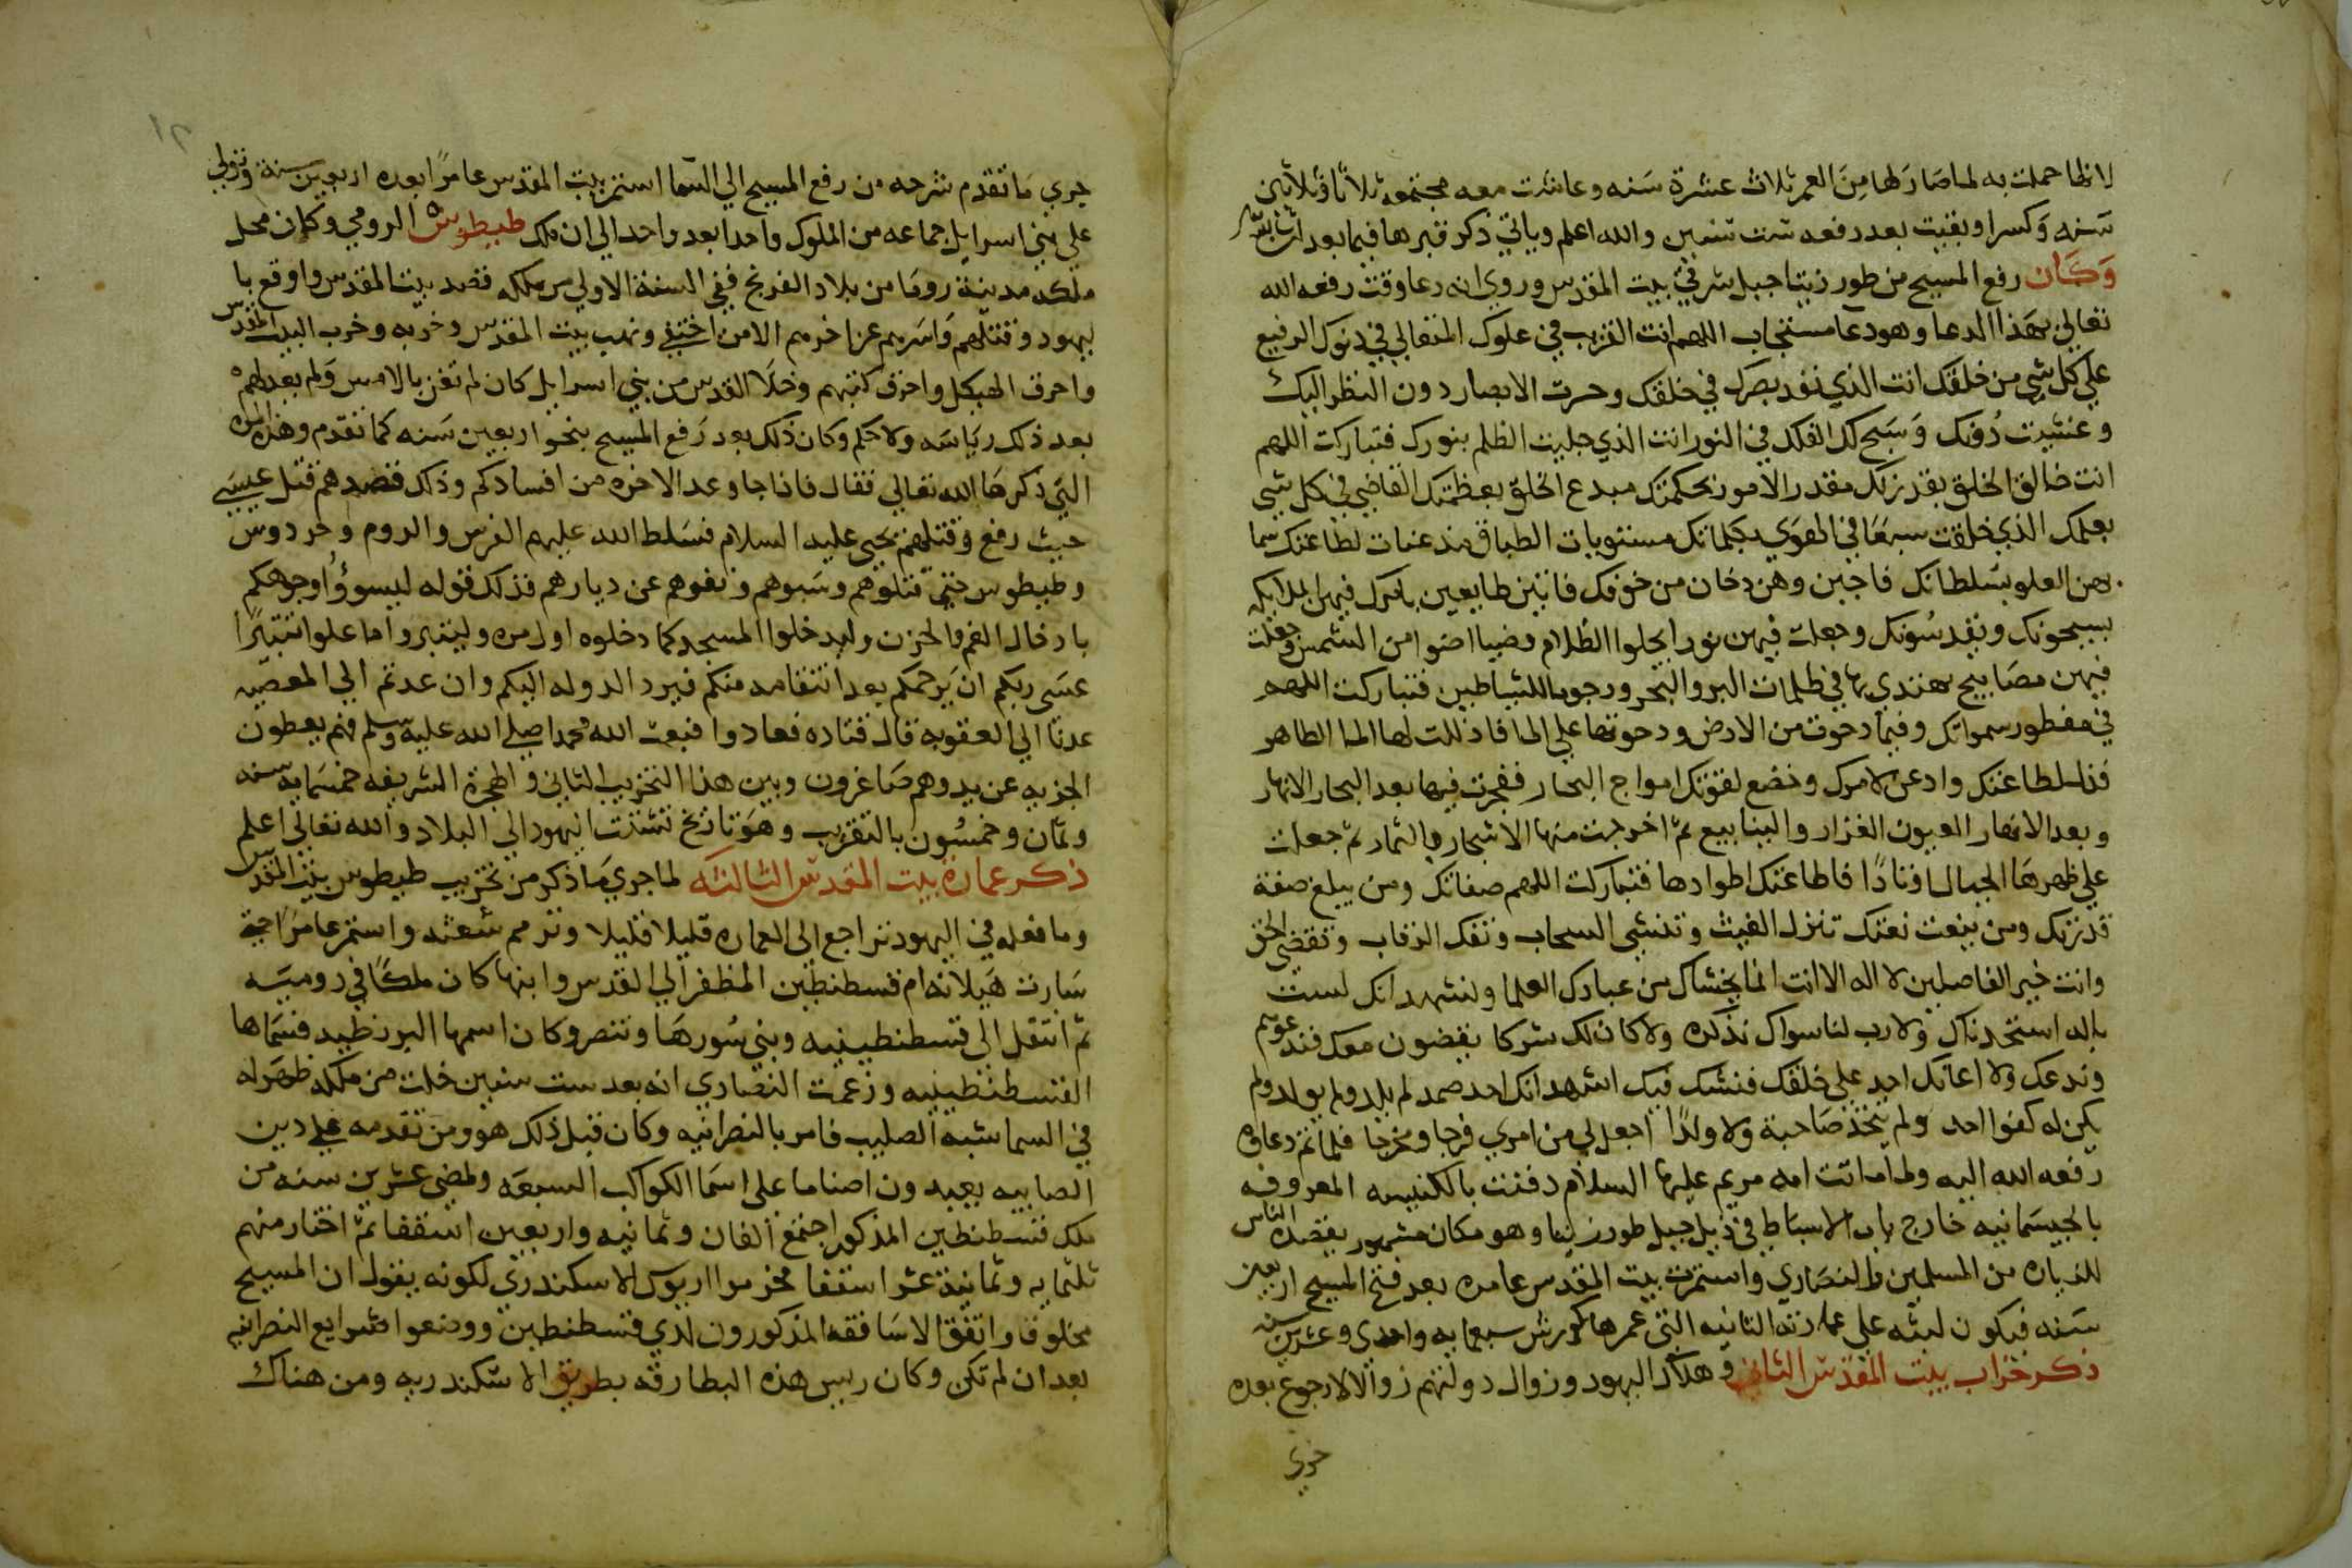 لانها حملت به لما صار لها من العمر ثلاث عشرة سنه وعاشت معه مجتمعه ثلاثا وثلاثين
سنه وكسرا وبقيت بعد رفعه ست سنين والله اعلم وياتي ذكر قبرها فيما بعد ان شا الله
وكان رفع المسيح من طور زيتا جبل شرقي بيت المقدس وروي انه دعا وقت رفعه الله
تعالي بهذا الدعا وهو دعا مستجاب اللهم انت القريب في علوك المتعالي في دنوك الرفيع
علي كل شي من خلقك انت الذي نفد بصرك في خلقك وحسرت الابصار دون النظر اليك
وعشيت دونك وسبح لك الفلك في النور انت الذي جليت الظلم بنورك فتباركت اللهم
انت خالق الخلق بقدرتك مقدر الامور بحكمتك مبدع الخلق بعظمتك القاضي في كل شي
بعلمك الذي خلقت سبعا في الهوي بكلماتك مستويات الطباق مذعنات لطاعتك سما
بهن العلو بسلطانك فاجبن وهن دخان من خوفك فاتين طايعين بامرك فيهن الملايكه
يسبحونك ويقدسونك وجعلت فيهن نورا يجلوا الظلام وضيا اضوا من الشمس وجعلت
فيهن مصابيح يهتدي بها في ظلمات البر والبحر ورجوما للشياطين فتباركت اللهم
في مفطور سمواتك وفيما دحوت من الارض ودحوتها علي الما فاذللت لها الما الطاهر
فذل لطاعتك واذعن لامرك وخضع لقوتك امواج البحار ففجرت فيها بعد البحار الانهار
وبعد الانهار العيون الغزار والينابيع ثم اخرجت منها الاشجار والثمار ثم جعلت
علي ظهرها الجبال اوتادا فاطاعتك اطوادها فتباركت اللهم صفاتك ومن يبلغ صفة
قدرتك ومن ينعت نعتك تنزل الغيث وتنشي السحاب وتفك الرقاب وتقضي الحق
وانت خير الفاصلين لا اله الا انت انما يخشاك من عبادك العلما ونشهد انك لست
باله استحدثناك ولا رب لنا سواك نذكره ولا كان لك شركا يقضون معك فندعوهم
وندعك ولا اعانك احد علي خلقك فنشك فيك اشهد انك احد صمد لم يلد ولم يولد ولم
يكن له كفوا احد ولم يتخذ صاحبة ولا ولدا اجعل لي من امري فرجا ومخرجا فلما تم دعاوه
رفعه الله اليه ولما ماتت امه مريم عليها السلام دفنت بالكنيسه المعروفه
بالجيسمانيه خارج باب الاسباط في ذيل جبل طور زيتا وهو مكان مشهور يقصده الناس
للزياره من المسلمين والنصاري واستمرت بيت المقدس عامره بعد فتح المسيح اربعين
سنه فيكون لبثه علي عمارته الثانيه التي عمرها كورش سبعمايه واحدي وعشرين سنه
ذكر خراب بيت المقدس الثاني وهلاك اليهود وزوال دولتهم زوالا لا رجوع بعده
جري
جري ما تقدم شرحه من رفع المسيح الي السما استمر بيت المقدس عامرا بعده اربعين سنة وتولي
علي بني اسرايل جماعه من الملوك واحدا بعد واحد الي ان ملك طيطوش الرومي وكان محل
ملكه مدينة روما من بلاد الفرنج ففي السنة الاولي من ملكه قصد بيت المقدس واوقع با
ليهود وقتلهم واسرهم عن اخرهم الا من اختفي ونهب بيت المقدس وخربه وخرب البيت المقدس
واحرق الهيكل واحرق كتبهم وخلا القدس من بني اسرايل كان لم تغن بالامس ولم يعد لهم
بعد ذلك رياسه ولا حكم وكان ذلك بعد رفع المسيح بنحو اربعين سنه كما تقدم وهذه المره
التي ذكرها الله تعالي فقال فاذا جا وعد الاخره من افسادكم وذلك قصدهم قتل عيسي
حيث رفع وقتلهم يحيي عليه السلام فسلط الله عليهم الفرس والروم وحردوس
وطيطوس حتي قتلوهم وسبوهم ونفوهم عن ديارهم فذلك قوله ليسوؤا وجوهكم
بادخال الغم والحزن وليدخلوا المسجد كما دخلوه اول مره وليتبروا ما علوا تتبيرا
عسي ربكم ان يرحمكم بعد انتقامه منكم فيرد الدوله اليكم وان عدتم الي المعصيه
عدنا الي العقوبه قال قتاده فعادوا فبعث الله محمدا صلي الله عليه وسلم فهم يعطون
الجزيه عن يد وهم صاغرون وبين هذا التخريب الثاني والهجرة الشريفه خمسمايه سنه
وثمان وخمسون بالتقريب وهو تاريخ تشتت اليهود الي البلاد والله تعالي اعلم
ذكر عمارة بيت المقدس الثالثه لما جري ما ذكر من تخريب طيطوس بيت المقدس
وما فعله في اليهود تراجع الي العماره قليلا قليلا وترمم شعثه واستمر عامرا حتي
سارت هيلانه ام قسطنطين المظفر الي القدس وابنها كان ملكا في روميه
ثم انتقل الي قسطنطينيه وبني سورها وتنصر وكان اسمها البرزطيه فسماها
القسطنطينيه وزعمت النصاري انه بعد ست سنين خلت من ملكه ظهر له
في السما شبه الصليب فامر بالنصرانيه وكان قبل ذلك هو ومن تقدمه علي دين
الصابيه يعبدون اصناما علي اسما الكواكب السبعه ولمضي عشرين سنه من
ملك قسطنطين المذكور اجتمع الفان وثمانيه واربعين اسقفا ثم اختار منهم
ثلثمايه وثمانية عشر اسقفا فحرموا اريوس الاسكندري لكونه يقول ان المسيح
مخلوقا واتفق الاساقفه المذكورون لدي قسطنطين ووضعوا شرايع النصرانيه
بعد ان لم تكن وكان ريس هذه البطارقه بطريق الاسكندريه ومن هناك